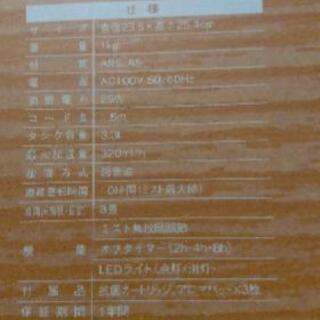 仕様
サイズ 直径23.5×高さ25.4cm
重量 1kg
材質 ABS, AS
電源 AC100V 50/60Hz
消費電力 25W
コード長 1.5m
タンク容量 3.3ℓ
最大加湿量 320ml/h
加湿方式 超音波
連続運転時間 10時間(ミスト最大時)
8畳
ミスト無段階調節
機能 オフタイマー(2h・4h・8h)
LEDライト(点灯/消灯)
付属品 抗菌カートリッジ、アロマ
保証期間 1年間